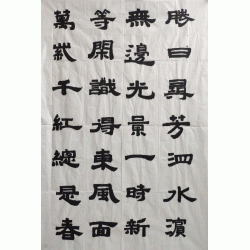 勝日尋芳泗水濱
無邊光景一時新
等閑識得東風面
萬紫千紅總是春